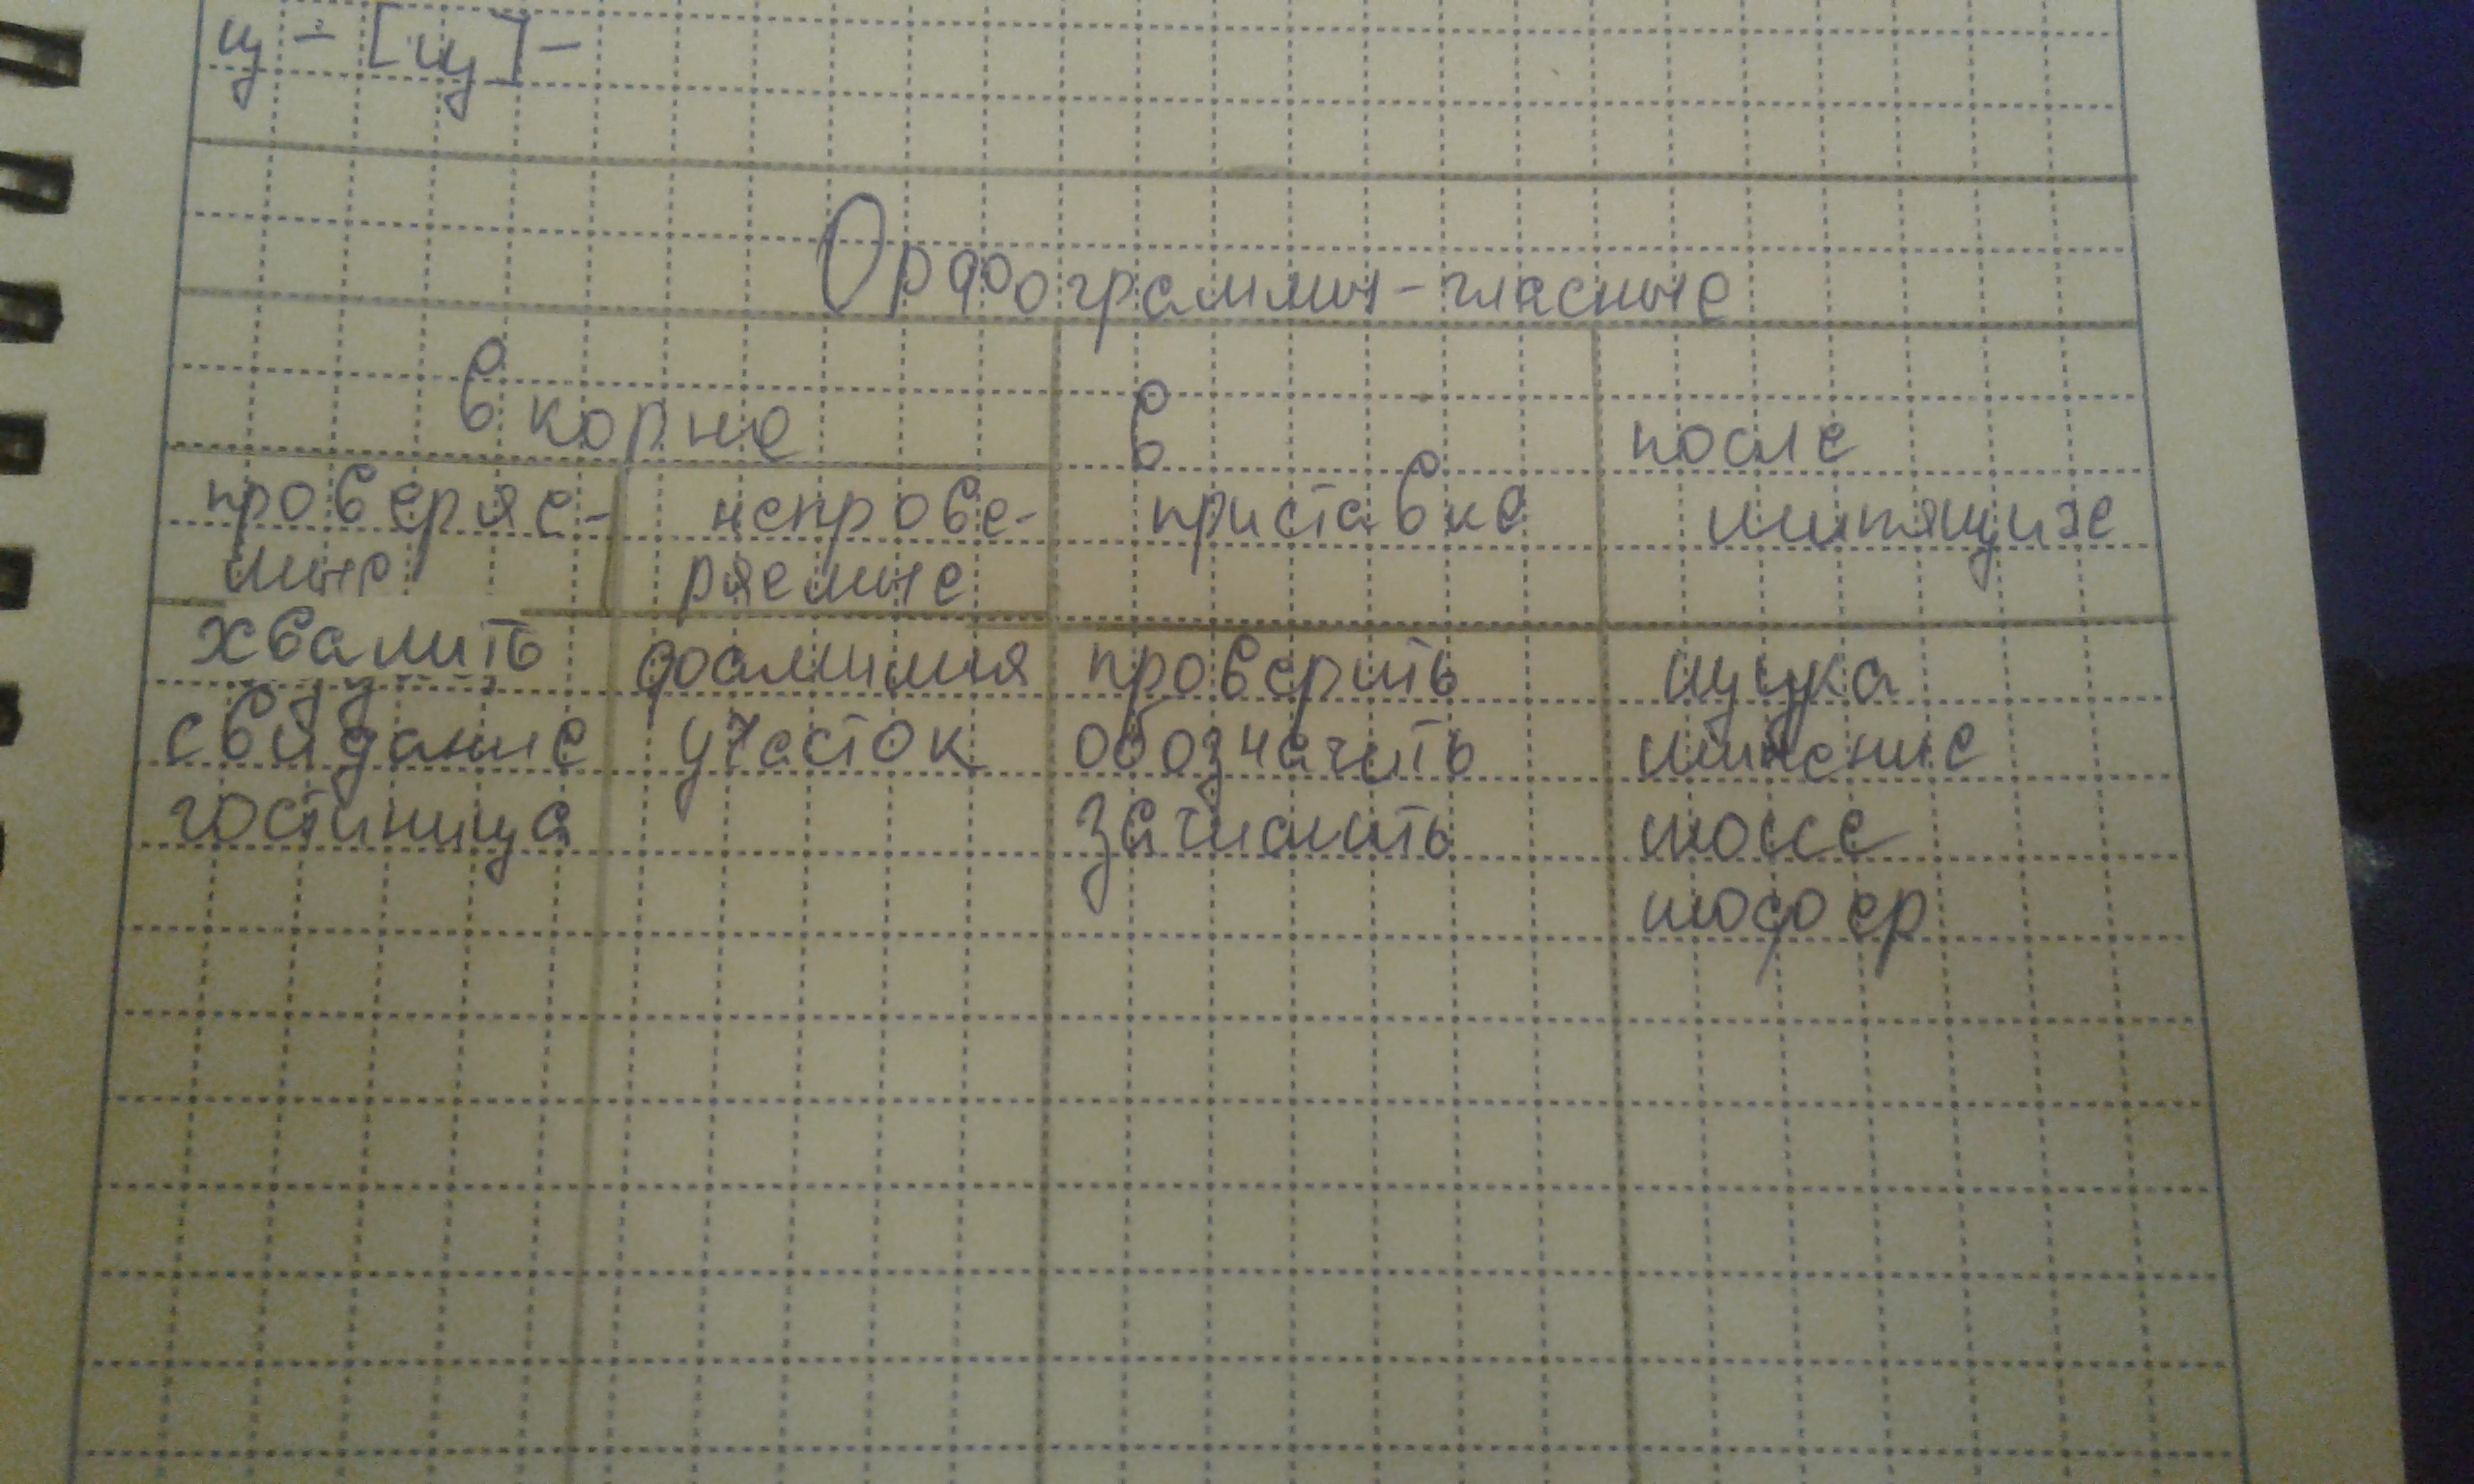 щ - [щ] -
Орфограммы-гласные
в корне
в
приставке
после
шипящих
проверяе-
мые
непрове-
ряемые
хвалить
фамилия
проверить
щука
свидание
участок
обозначить
гостиница
зачислить
шоссе
шофер